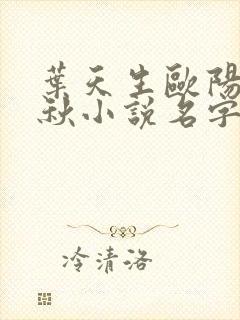 葉天生歐陽
秋小說名字
冷清洛